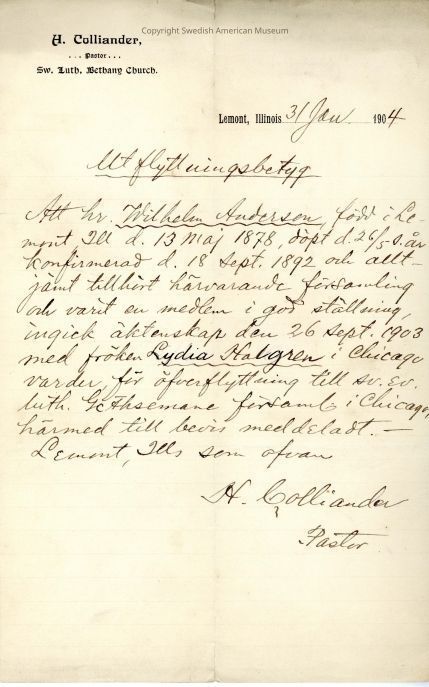 Copyright Swedish American Museum
H. Colliander,
... Pastor ...
Sw. Luth. Bethany Church.
Lemont, Illinois 31 Jan. 1904
Utflyttningsbetyg
Att hr. Wilhelm Anderson, född i Le-
mont Ill d. 13 Maj 1878, döpt d. 26/5 s. år
konfirmerad d. 18 Sept. 1892 och allt-
jämt tillhört härvarande församling
och varit en medlem i god ställning,
ingick äktenskap den 26 Sept. 1903
med fröken Lydia Halgren i Chicago
varder, för öfverflyttning till sv. Ev.
Luth. Gethsemane församl. i Chicago,
härmed till bevis meddeladt. —
Lemont, Ills som ofvan
H. Colliander
Pastor.